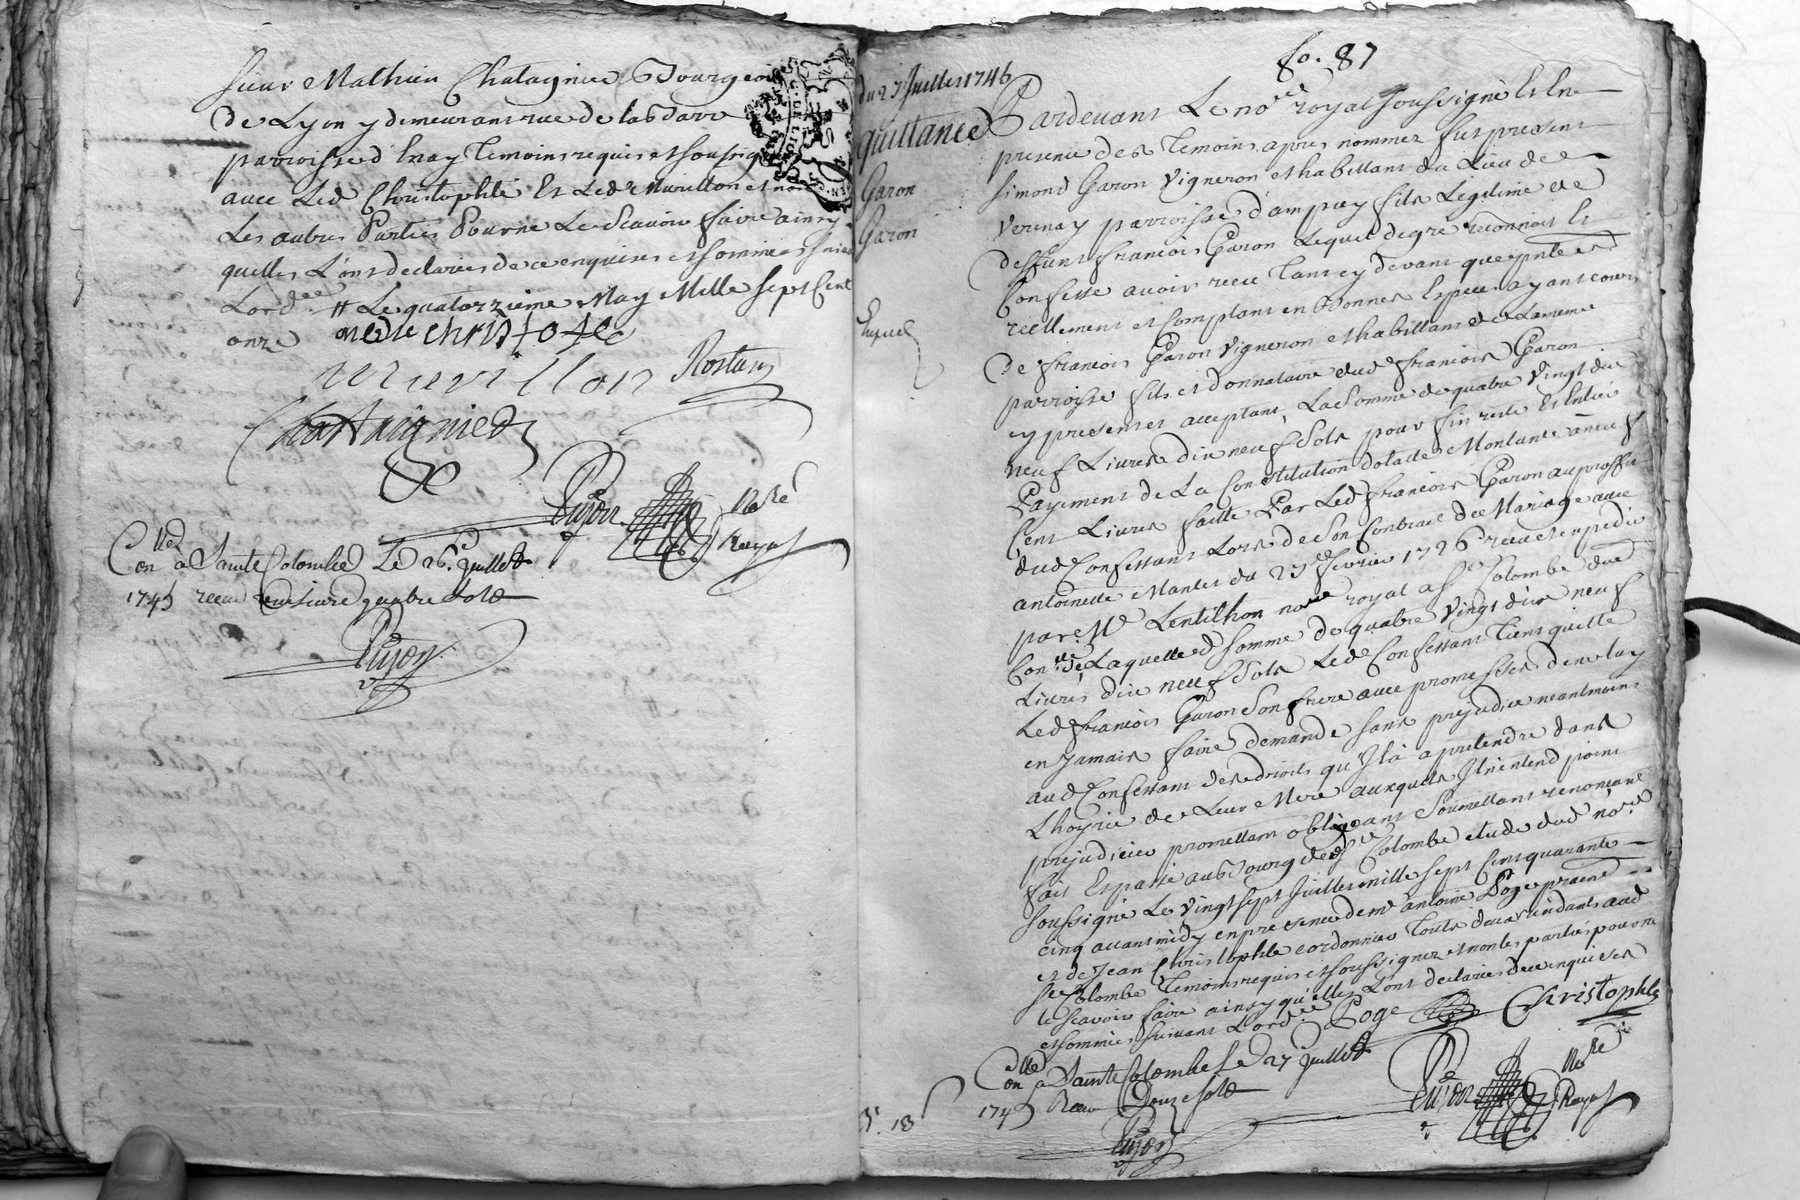 sieur Mathieu Chatagnier Bourgeois
de Lyon y demeurant rue de la
parroisse d'Enay Temoins requis et soussignés
avec Led Christophle Et Led Murillon et non
Les autres Parties Pour ne Le Scavoir faire ainsy
quelles L'ont declarées de ce enquises et sommées
Lordce # Le quatorzieme May Mille sept Cent
onze
christofle
murillon Rostaing
Chattaignier
Pujon Nore
Royal
Collen a Sainte Colombe Le 26e Juillet
1745 receu une livre quatre sols
Pujon
fo. 87
du 27 Juillet 1745
quittance
Garon
Garon
Pardevant Le nore royal soussigné Et En
presence des Temoins apres nommez fut present
simond Garon Vigneron et habittant du Lieu de
Verenay parroisse d'ampuy fils Legitime de
deffunt francois Garon Lequel de gré reconnoit Et
Confesse avoir receu Tant cy devant que pntemt
réellement et Comptant en Bonnes Especes ayant cours
De francois Garon Vigneron et habittant de La mème
parroisse fils et donnataire dud francois Garon
cy present et acceptant La Somme de quatre Vingt dix
neuf Livres dix neuf Sols pour fin reste Et Entier
Payement de La Constitution dotalle Montante à neuf
Cent Livres faitte Par Led francois Garon au proffit
dud Confessant Lors de Son Contract de Mariage avec
antoinette Mantes du 27 fevrier 1726 receu et expedié
par Me Lentilhon nore royal a Ste Colombe due
Conlé de Laquelle d somme de quatre Vingt dix neuf
Livres dix neuf Sols Led Confessant Tient quitte
Led francois Garon Son frere avec promesses de ne luy
en Jamais faire demande sans prejudice neantmoins
aud Confessant des droits qu'Il a a pretendre dans
L'hoyrie de Leur Mere auxquels Il n'entend point
prejudicier promettant obligeant Soumettant renonceant
fait Et passé au Bourg de Ste Colombe etude dud nore
soussigné Le Vingt sept Juillet mille sept Cent quarante
cinq avant midy en presence de mr antoine Poge praen
et de Jean Christophle cordonnier Touts deux residants aud
Ste Colombe Temoins requis et soussignez et non les parties pour ne
le scavoir faire ainsy qu'elles L'ont declarées de ce enquises
et sommées suivant L'ordce
Poge Christophle
Collen a Sainte Colombe Le 27 Juillet
1745 Receu Douze sols
Pujon Nore
Royal
Pujon
18